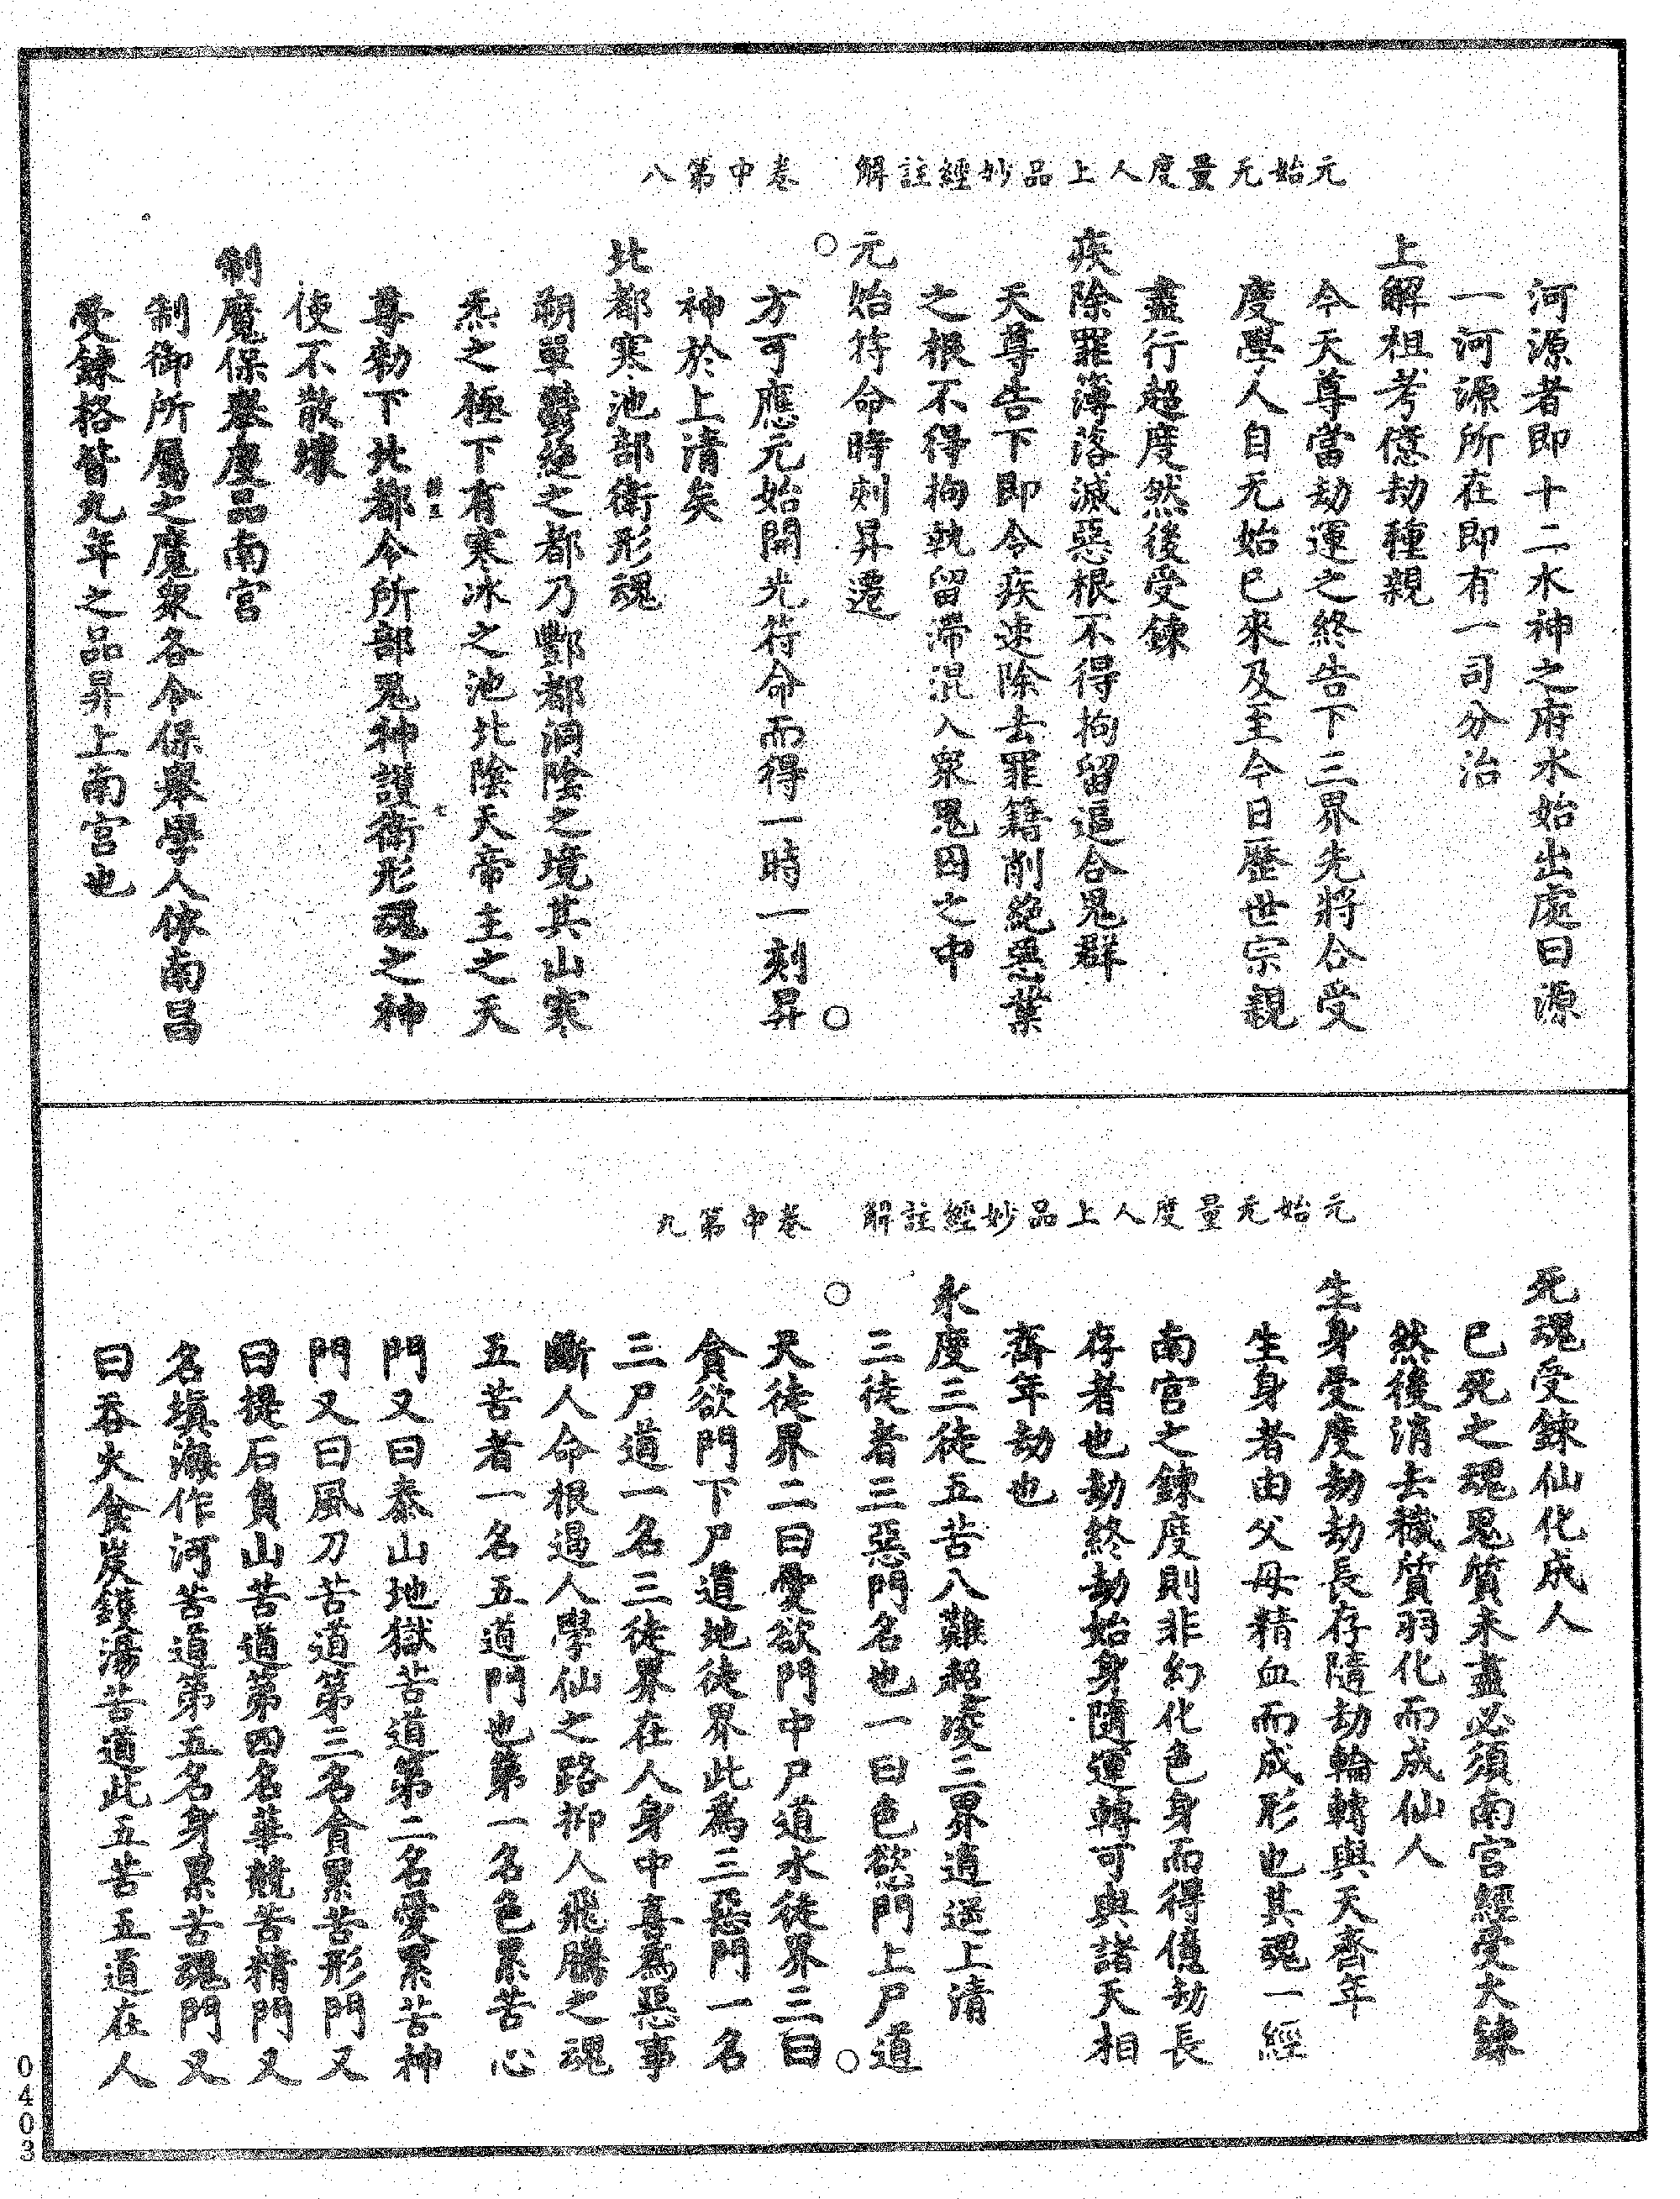 元始无量度人上品妙經註解　卷中第八
河源者即十二水神之府水始出處曰源
一河源所在即有一司分治
上解祖考億劫種親
今天尊當劫運之終告下三界先將合受
度學人自无始已來及至今日歷世宗親
盡行超度然後受鍊
疾除罪簿落滅惡根不得拘留逼合鬼群
天尊告下即令疾速除去罪籍削絶惡業
之根不得拘執留滯混入衆鬼囚之中
元始符命時刻昇遷
方可應元始開光符命而得一時一刻昇
神於上清矣
北都寒池部衛形魂
朔單鬱絶之都乃酆都洞陰之境其山寒
炁之極下有寒冰之池北陰天帝主之天
尊勑下北都令所部鬼神護衛形魂之神
使不散壞
制魔保舉度品南宮
制御所屬之魔衆各令保舉學人依南昌
受鍊格皆九年之品昇上南宮也
元始无量度人上品妙經註解　卷中第九
死魂受鍊仙化成人
已死之魂鬼質未盡必須南宮經受火鍊
然後消去穢質羽化而成仙人
生身受度劫劫長存隨劫輪轉與天齊年
生身者由父母精血而成形也其魂一經
南宮之鍊度則非幻化色身而得億劫長
存者也劫終劫始身隨運轉可與諸天相
齊年劫也
永度三徒五苦八難超凌三界逍遥上清
三徒者三惡門名也一曰色慾門上尸道
天徒界二曰愛欲門中尸道水徒界三曰
貪欲門下尸道地徒界此爲三惡門一名
三尸道一名三徒界在人身中喜爲惡事
斷人命根遏人學仙之路抑人飛騰之魂
五苦者一名五道門也第一名色累苦心
門又曰泰山地獄苦道第二名愛累苦神
門又曰風刀苦道第三名貪累苦形門又
曰提石負山苦道第四名華競苦精門又
名填海作河苦道第五名身累苦魂門又
曰吞火食炭鑊湯苦道此五苦五道在人
0403